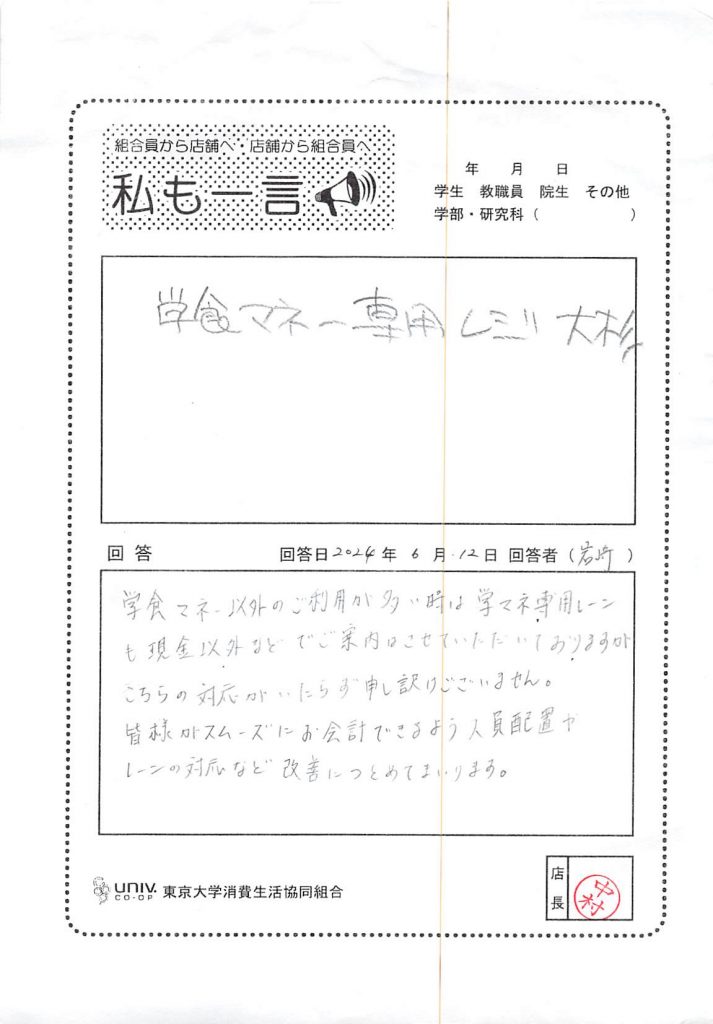 組合員から店舗へ・店舗から組合員へ
私も一言
年 月 日
学生 教職員 院生 その他
学部・研究科（ ）
学食マネー専用レジ
回答 回答日2024年 6月12日 回答者（岩崎）
学食マネー以外のご利用が多い時は学マネ専用レーン
も現金以外などでご案内はさせていただいておりますが
こちらの対応がいたらず申し訳けございません。
皆様がスムーズにお会計できるよう人員配置や
レーンの対応など改善につとめてまいります。
UNIV.
CO-OP
東京大学消費生活協同組合
店長
中村